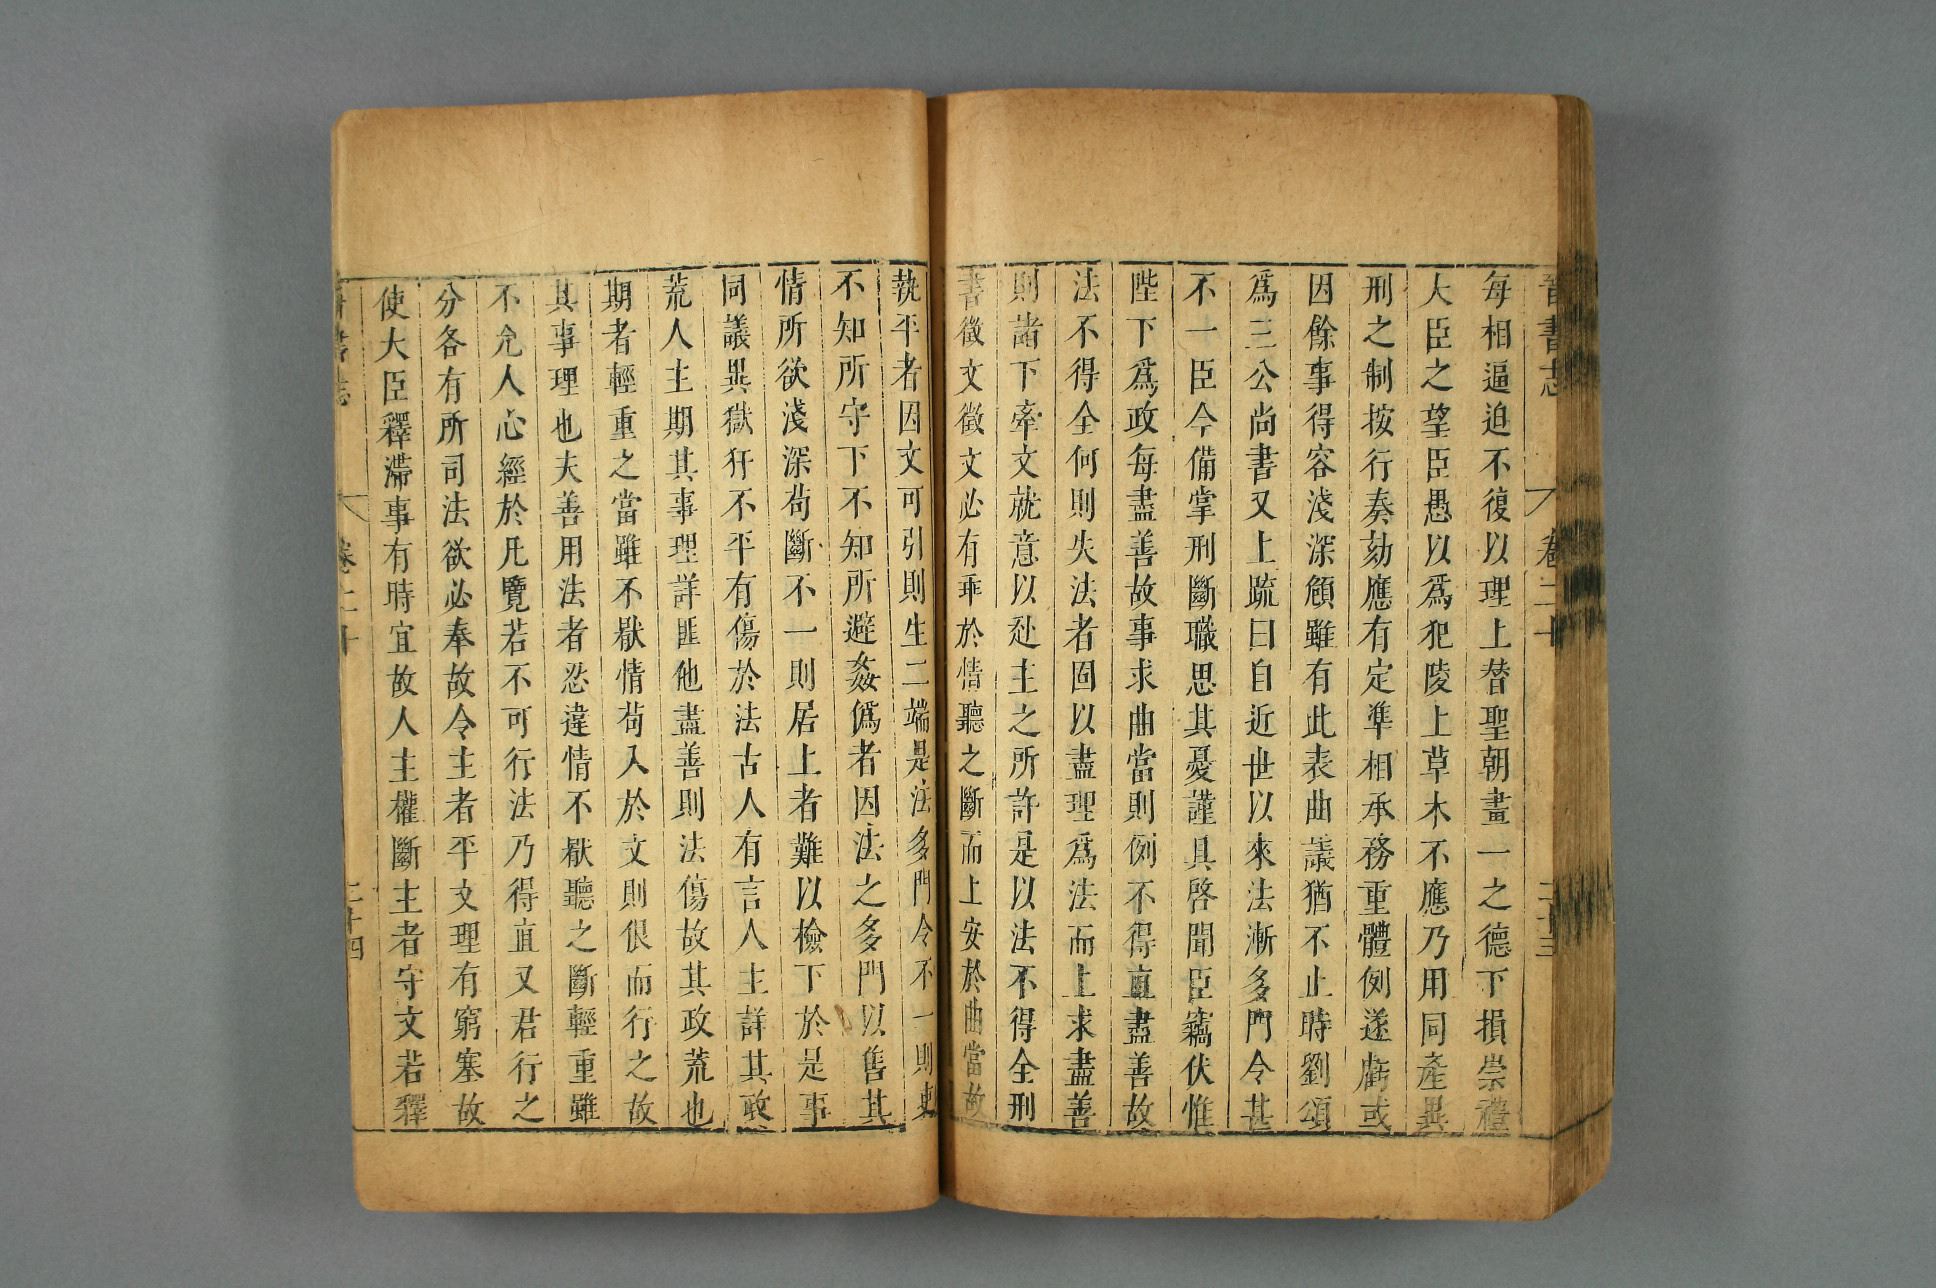 晉書志 卷二十 二十三
每相逼迫不復以理上替聖朝畫一之德下損崇禮
大臣之望臣愚以爲犯陵上草木不應乃用同產異
刑之制按行奏劾應有定準相承務重體例遂虧或
因餘事得容淺深頠雖有此表曲議猶不止時劉頌
爲三公尚書又上疏曰自近世以來法漸多門令甚
不一臣今備掌刑斷職思其憂謹具啓聞臣竊伏惟
陛下爲政每盡善故事求曲當則例不得直盡善故
法不得全何則失法者固以盡理爲法而上求盡善
則諸下牽文就意以赴主之所許是以法不得全刑
書徵文徵文必有乖於情聽之斷而上安於曲當故
執平者因文可引則生二端是法多門令不一則吏
不知所守下不知所避姦僞者因法之多門以售其
情所欲淺深苟斷不一則居上者難以檢下於是事
同議異獄犴不平有傷於法古人有言人主詳其政
荒人主期其事理詳匪他盡善則法傷故其政荒也
期者輕重之當雖不厭情苟入於文則佷而行之故
其事理也夫善用法者忍違情不厭聽之斷輕重雖
不允人心經於凡覽若不可行法乃得直又君行之
分各有所司法欲必奉故令主者平文理有窮塞故
使大臣釋滯事有時宜故人主權斷主者守文若釋
書志 卷二十 二十四